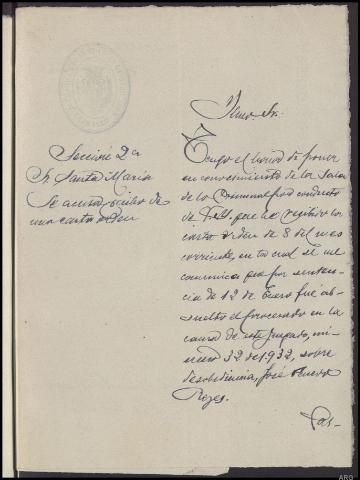 Sección 2ª
Sr. Santa Maria
Se acusa recibo de
una carta orden
Ilmo. Sr.
Tengo el honor de poner
en conocimiento de la Sala
de lo Criminal por conducto
de V.I. que he recibido la
carta orden de 8 del mes
corriente, en la cual se me
comunica que por senten-
cia de 12 de Enero fué ab-
suelto el procesado en la
causa de este Juzgado, nú-
mero 32 de 1932, sobre
desobediencia, José
Reyes.
ARO